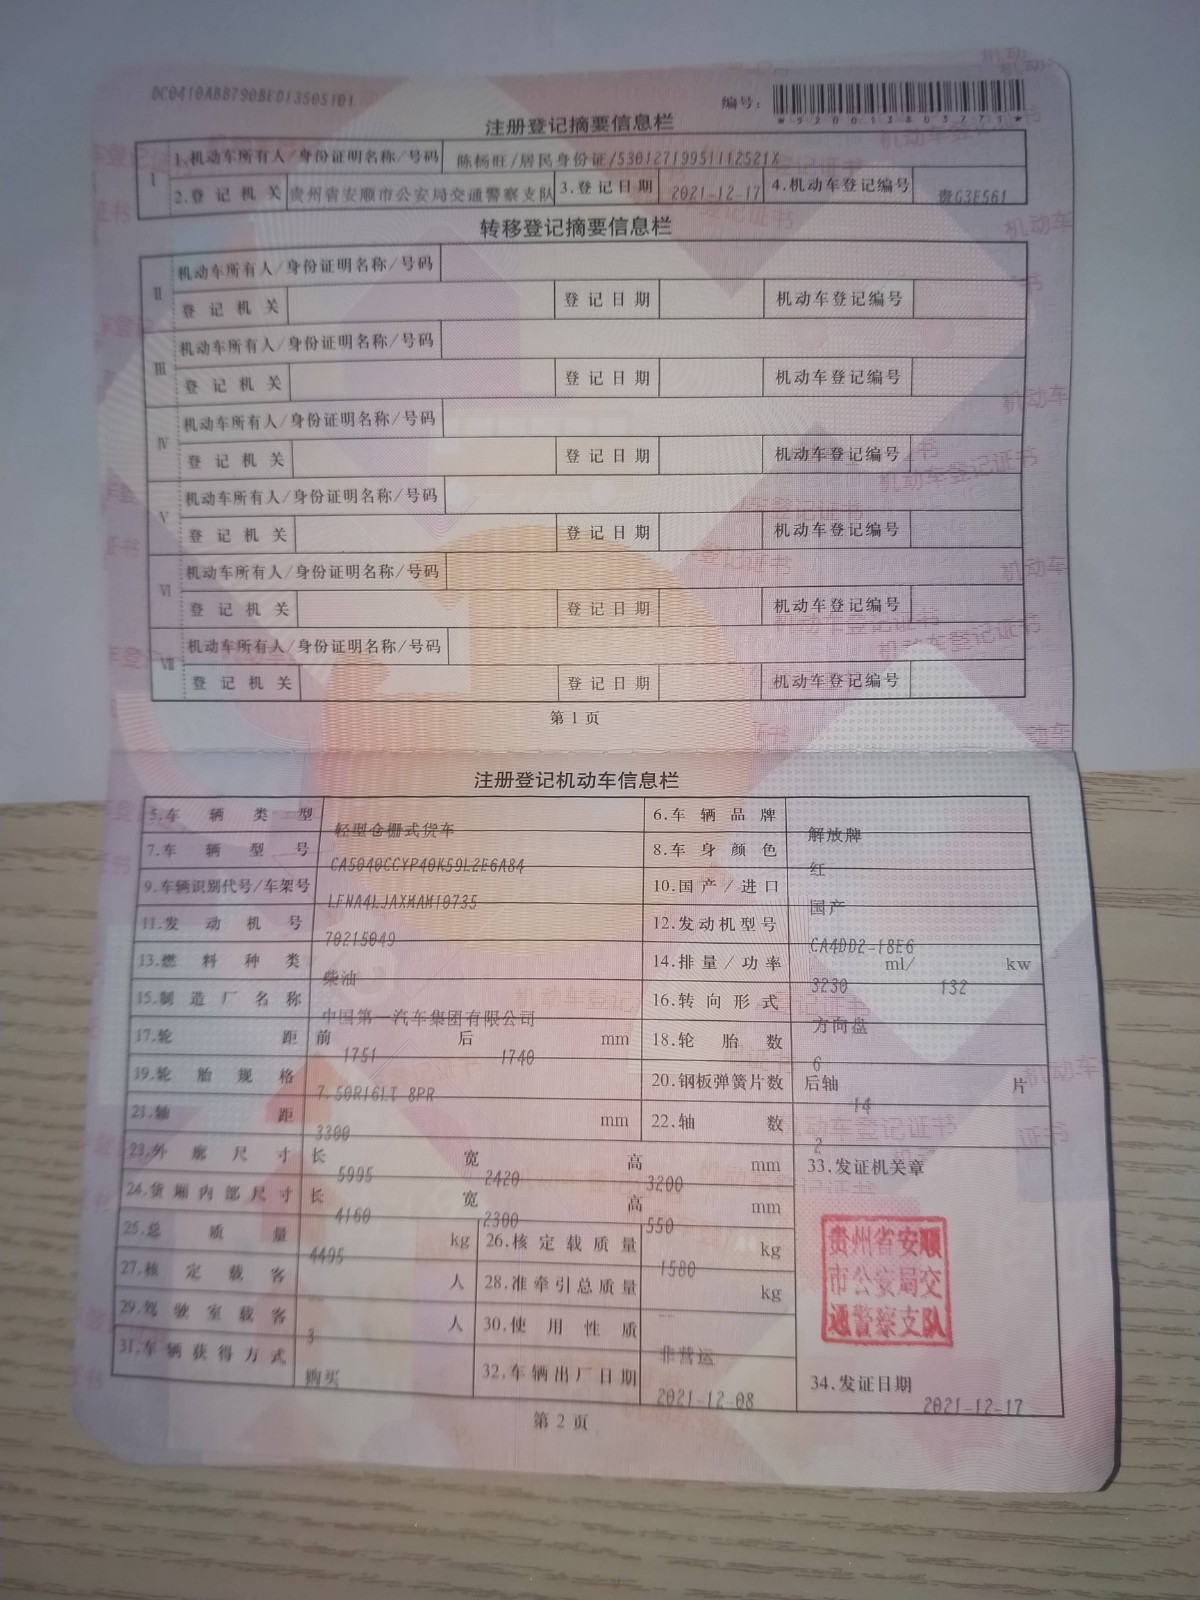 DC0410ABB790BE013505101
编号：
*520013803771*
注册登记摘要信息栏
I 1.机动车所有人/身份证明名称/号码 陈杨旺/居民身份证/53012719951112521X
2.登记机关 贵州省安顺市公安局交通警察支队 3.登记日期 2021-12-17 4.机动车登记编号 贵G3E561
转移登记摘要信息栏
II 机动车所有人/身份证明名称/号码
登记机关 登记日期 机动车登记编号
III 机动车所有人/身份证明名称/号码
登记机关 登记日期 机动车登记编号
IV 机动车所有人/身份证明名称/号码
登记机关 登记日期 机动车登记编号
V 机动车所有人/身份证明名称/号码
登记机关 登记日期 机动车登记编号
VI 机动车所有人/身份证明名称/号码
登记机关 登记日期 机动车登记编号
VII 机动车所有人/身份证明名称/号码
登记机关 登记日期 机动车登记编号
第1页
注册登记机动车信息栏
5.车辆类型 轻型仓栅式货车 6.车辆品牌 解放牌
7.车辆型号 CA5040CCYP40K59L2E6A84 8.车身颜色 红
9.车辆识别代号/车架号 LFNA4LJAXMAM10735 10.国产/进口 国产
11.发动机号 70215049 12.发动机型号 CA4DD2-18E6
13.燃料种类 柴油 14.排量/功率 3230 ml/ 132 kw
15.制造厂名称 中国第一汽车集团有限公司 16.转向形式 方向盘
17.轮距 前 1751 后 1740 mm 18.轮胎数 6
19.轮胎规格 7.50R16LT 8PR 20.钢板弹簧片数 后轴 14 片
21.轴距 3300 mm 22.轴数 2
23.外廓尺寸 长 5995 宽 2420 高 3200 mm 33.发证机关章
24.货厢内部尺寸 长 4160 宽 2300 高 550 mm
25.总质量 4495 kg 26.核定载质量 1580 kg
27.核定载客 人 28.准牵引总质量 kg
29.驾驶室载客 3 人 30.使用性质 非营运
31.车辆获得方式 购买 32.车辆出厂日期 2021-12-08
贵州省安顺
市公安局交
通警察支队
34.发证日期 2021-12-17
第2页